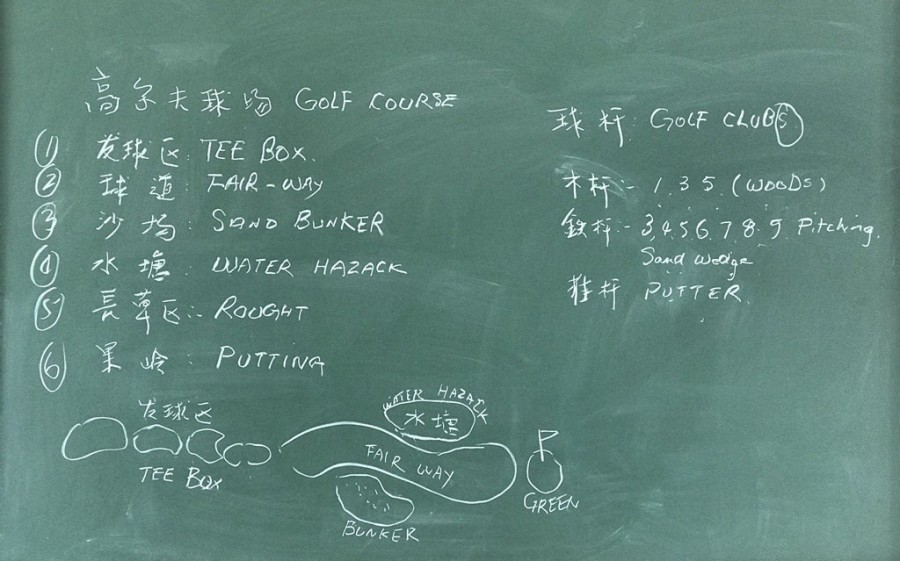 高尔夫球场 GOLF COURSE
① 发球区: TEE BOX.
② 球道: FAIR-WAY
③ 沙场: SAND BUNKER
④ 水塘: WATER HAZACK
⑤ 長草区: ROUGHT
⑥ 果岭: PUTTING
球杆: GOLF CLUBS
木杆 - 1. 3. 5. (WOODS)
鉄杆 - 3.4.5.6.7.8.9 Pitching.
Sand Wedge
推杆 PUTTER.
发球区
TEE BOX
WATER HAZACK
水塘
FAIR WAY
BUNKER
GREEN